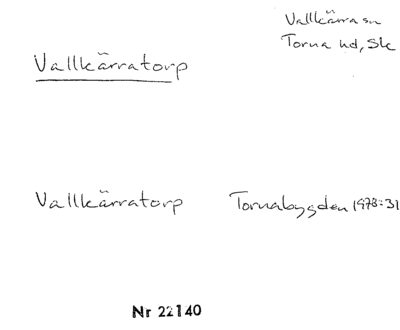 Vallkärra sn
Torna hd, Sk
Vallkärratorp
Vallkärratorp Tornabygden 1978:31
Nr 22140